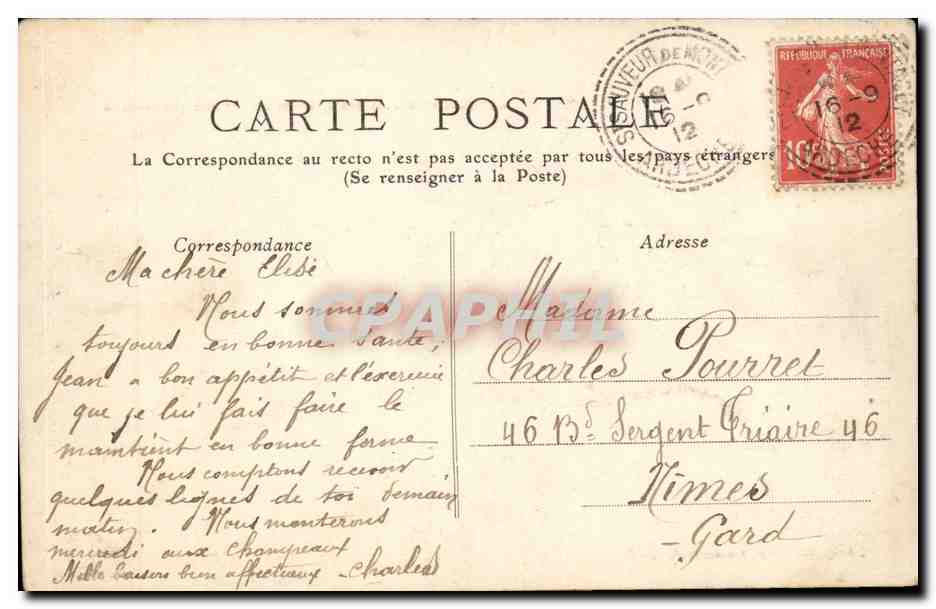 CARTE POSTALE
La Correspondance au recto n'est pas acceptée par tous les pays étrangers
(Se renseigner à la Poste)
ST SAUVEUR DE MONT
16 -9
12
ARDECHE
REPUBLIQUE FRANÇAISE
16 -9
12
ARDECHE
10
POSTES
Correspondance
Ma chère Elisé
Nous sommes
toujours en bonne santé,
Jean a bon appétit et l'exercice
que je lui fais faire le
maintient en bonne forme
Nous comptons recevoir
quelques lignes de toi demain
matin. Nous monterons
mercredi aux Champeaux
Mille baisers bien affectueux - Charles
Adresse
Madame
Charles Pourret
46 Bd Sergent Triaire 46
Nîmes
- Gard
CPAPHIL